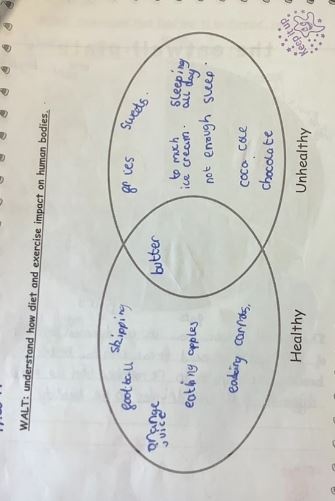 WALT: understand how diet and exercise impact on human bodies.
Keep it up
Healthy
Unhealthy
football
skipping
orange
juice
eating apples
eating carrots.
butter
sweets.
to much
ice cream.
sleeping
all day
not enough sleep.
coca cola
chocolate